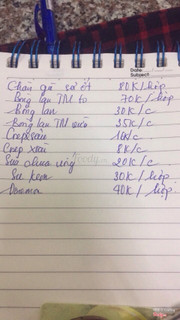 Date
Subject
Chân gà sả ớt 80K/hộp
Bông lan TM to 70K/hộp
Bông lan 30K/c
Bông lan TM 35K/c
Crepe sầu 16K/c
Crep xoài 8K/c
Sữa chua 20K/c
Su kem 30K/hộp
40K/hộp